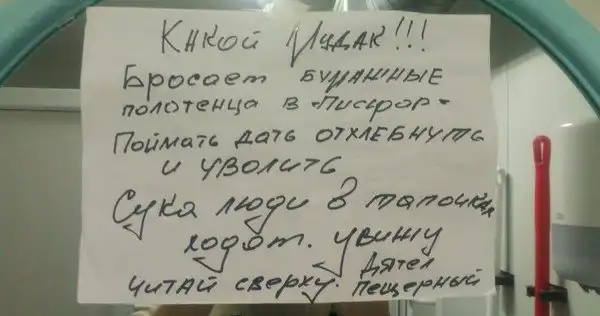 Какой мудак!!!
Бросает бумажные
полотенца в "Писуар"
Поймать дать отхлебнуть
и уволить
Сука люди в тапочках
ходят. увижу
читай сверху. Дятел
пещерный